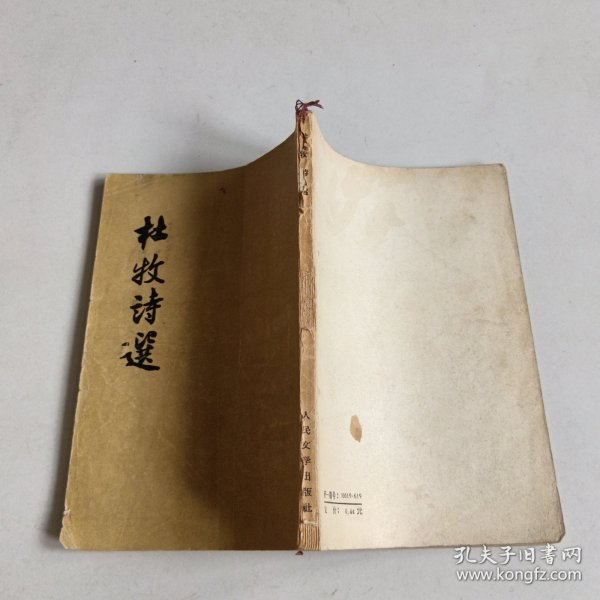 杜牧詩選
人民文学出版社
书号：10019·619
定价：0.64元
孔夫子旧书网
www.kongfz.com